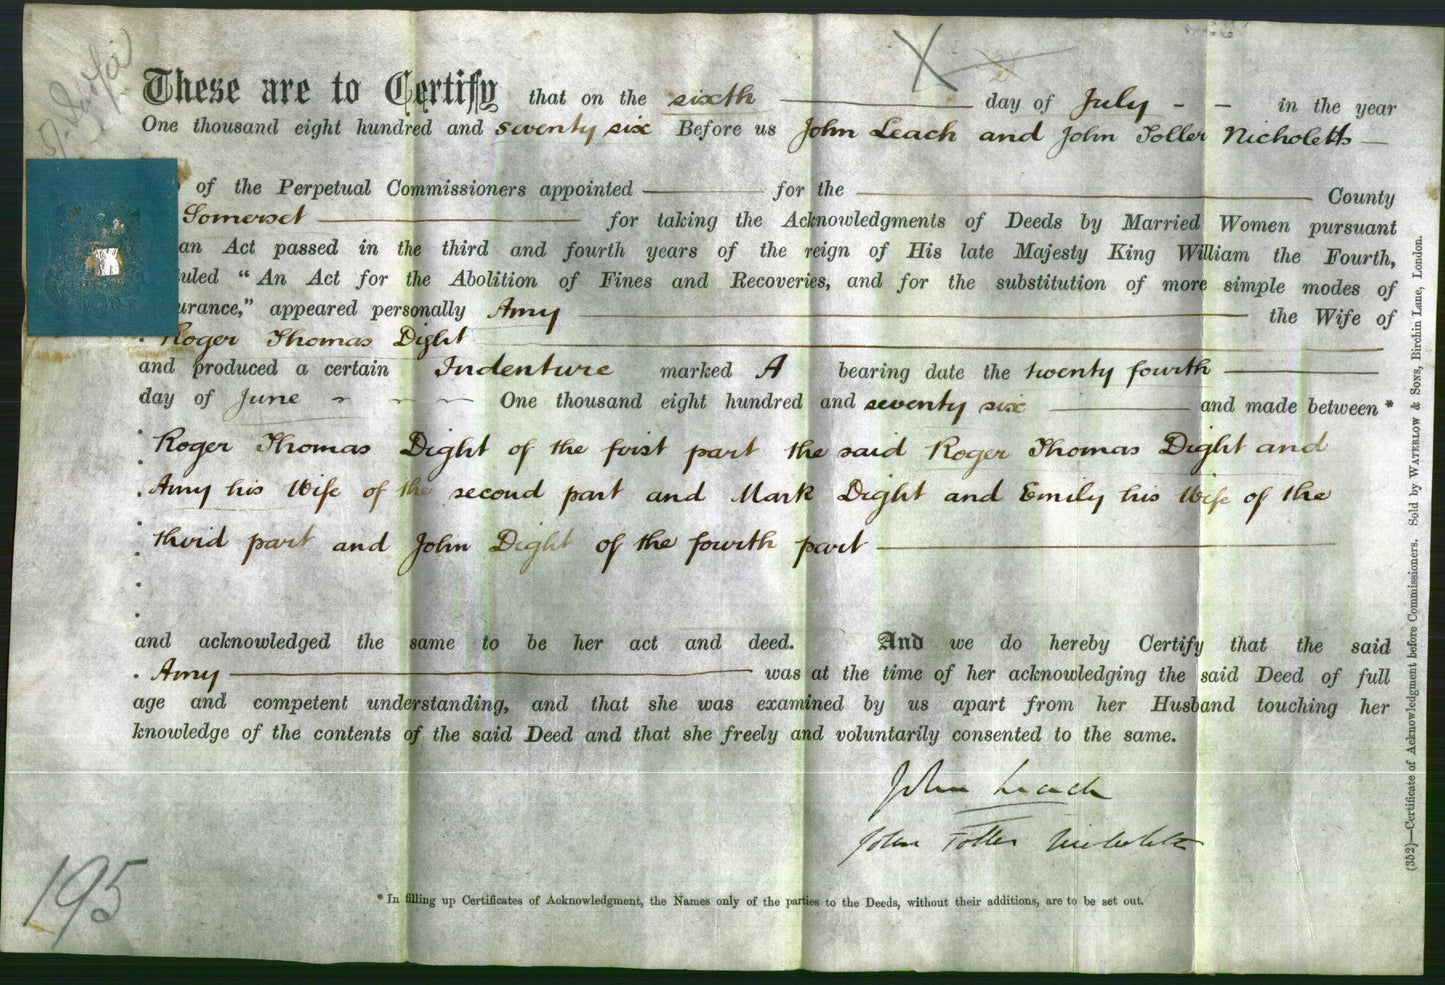 These are to Certify that on the sixth day of July - - in the year
One thousand eight hundred and seventy six Before us John Leach and John Toller Nicholetts
of the Perpetual Commissioners appointed for the County
Somerset for taking the Acknowledgments of Deeds by Married Women pursuant
an Act passed in the third and fourth years of the reign of His late Majesty King William the Fourth,
tuled "An Act for the Abolition of Fines and Recoveries, and for the substitution of more simple modes of
urance," appeared personally Amy the Wife of
Roger Thomas Dight
and produced a certain Indenture marked A bearing date the twenty fourth
day of June One thousand eight hundred and seventy six and made between*
Roger Thomas Dight of the first part the said Roger Thomas Dight and
Amy his Wife of the second part and Mark Dight and Emily his Wife of the
third part and John Dight of the fourth part
and acknowledged the same to be her act and deed. And we do hereby Certify that the said
Amy was at the time of her acknowledging the said Deed of full
age and competent understanding, and that she was examined by us apart from her Husband touching her
knowledge of the contents of the said Deed and that she freely and voluntarily consented to the same.
John Leach
John Toller Nicholetts
195
* In filling up Certificates of Acknowledgment, the Names only of the parties to the Deeds, without their additions, are to be set out.
(352)—Certificate of Acknowledgment before Commissioners. Sold by WATERLOW & SONS, Birchin Lane, London.